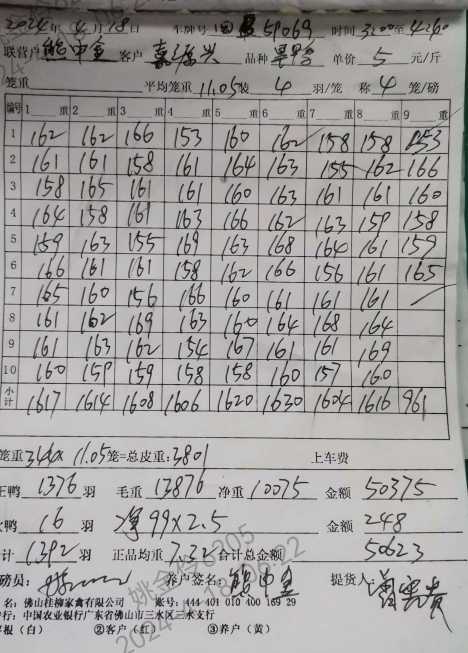 2024年4月18日 车牌号 59069 时间 3200至4260
联营户 熊申金 客户 品种 单价 5 元/斤
笼重 平均笼重 11.05 装 4 羽/笼 称 4 笼/磅
编号 1 重 2 重 3 重 4 重 5 重 6 重 7 重 8 重 9 重
1 162 162 166 153 160 162 158 158 153
2 161 161 158 161 164 163 155 162 166
3 158 165 161 161 160 163 161 161 160
4 164 158 161 163 166 162 163 159 158
5 159 163 155 169 163 168 164 161 159
6 166 161 161 158 162 166 156 161 165
7 165 160 156 166 160 161 161 161
8 161 162 169 163 160 164 168 164
9 161 163 162 154 167 161 161 169
10 160 159 159 158 158 160 157 160
小计 1617 1614 1608 1606 1620 1630 1604 1616 961
笼重 344x 11.05 笼=总皮重: 3801 上车费
正鸭 1376 羽 毛重 13876 净重 10075 金额 50375
鸭 16 羽 净99x2.5 金额 248
计 1392 羽 正品均重 7.32 合计总金额 50623
磅员: 养户签名: 熊申金 提货人:
名: 佛山桂柳家禽有限公司 账号: 444 401 010 400 169 29
行: 中国农业银行广东省佛山市三水区三水支行
存根(白) ②客户(红) ③养户(黄)